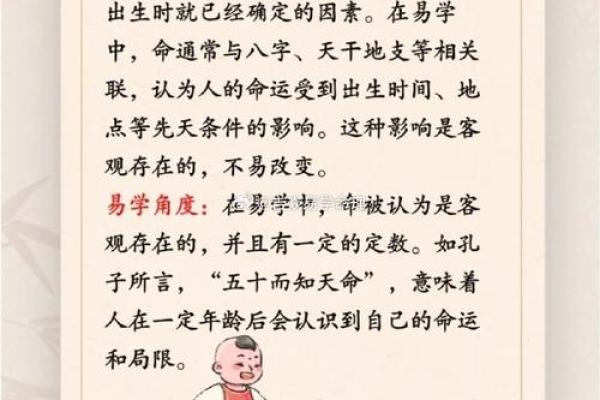 出生时就已经确定的因素。在易学
中，命通常与八字、天干地支等相关
联，认为人的命运受到出生时间、地
点等先天条件的影响。这种影响是客
观存在的，不易改变。
易学角度：在易学中，命被认为是客
观存在的，并且有一定的定数。如孔
子所言，“五十而知天命”，意味着
人在一定年龄后会认识到自己的命运
和局限。